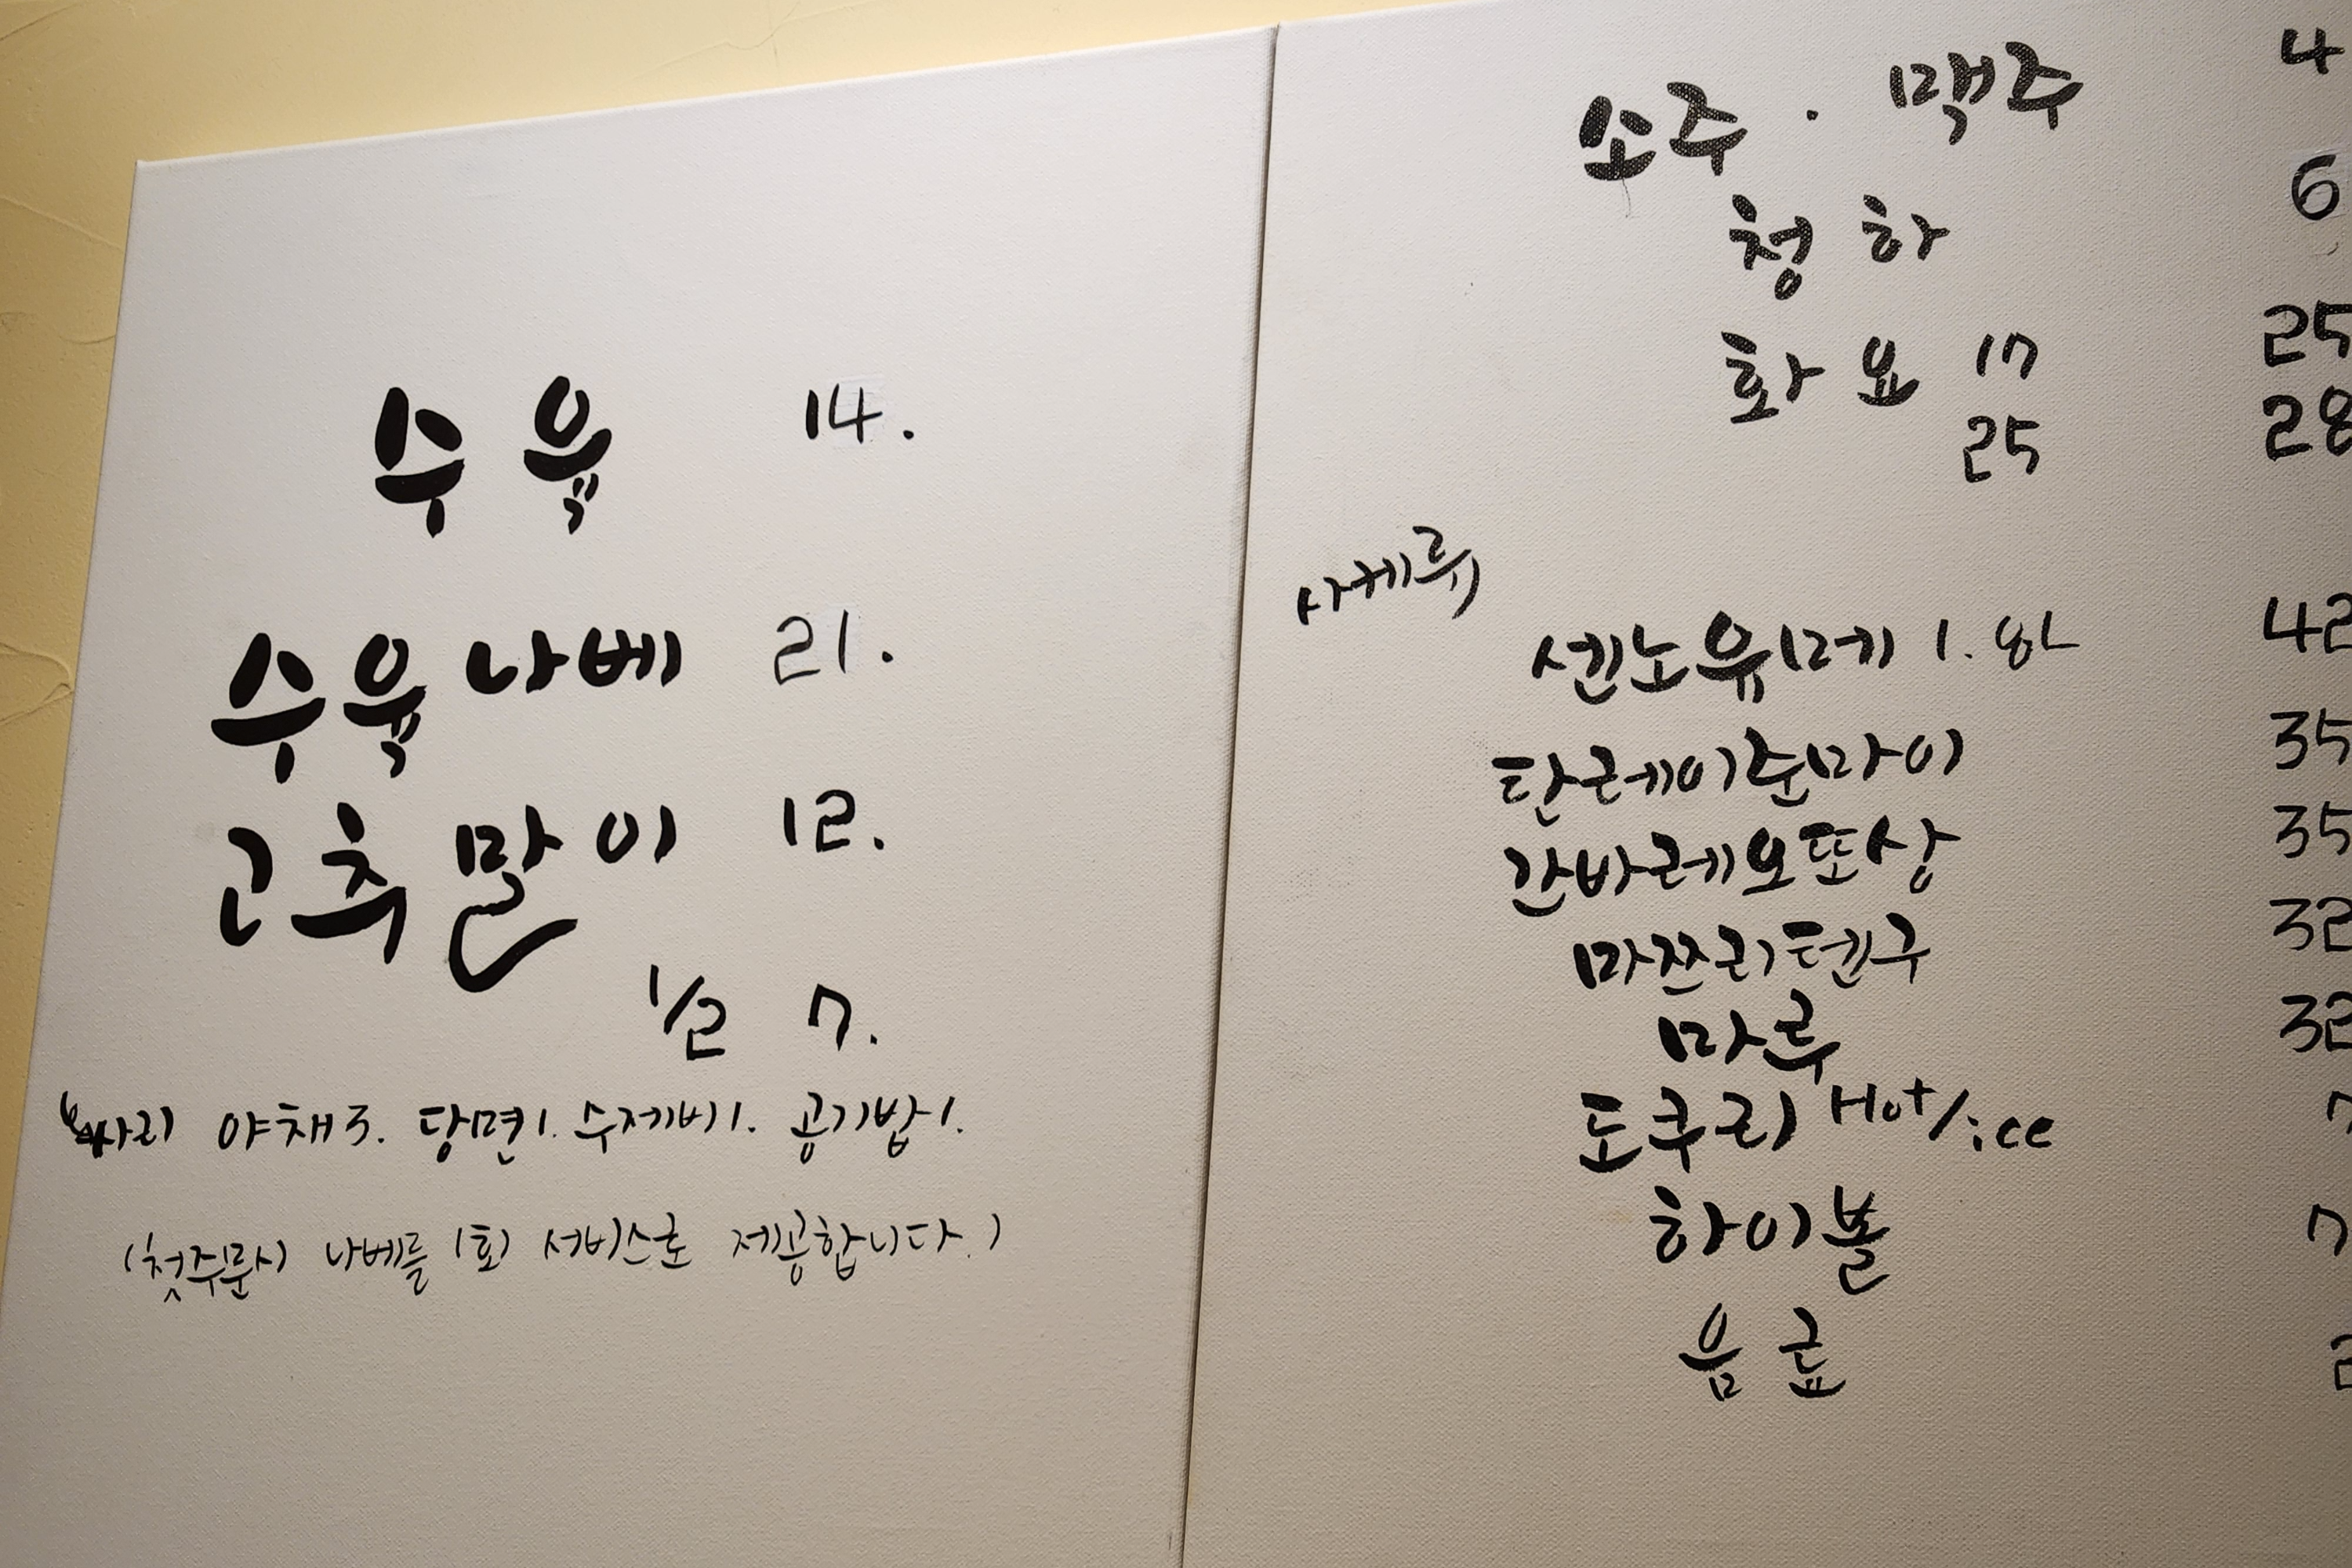 수육 14.
수육나베 21.
고추말이 12.
1/2 7.
사리 야채 3. 당면 1. 수제비 1. 공기밥 1.
(첫주문시 나베를 1회 서비스로 제공합니다.)
소주 · 맥주 4
청하 6
화요 17 25
25 28
사케류
센노유메 1.8L 42
탄레이준마이 35
간바레오또상 35
마쯔리텐구 32
마루 32
도쿠리 Hot/ice 7
하이볼 7
음료 2